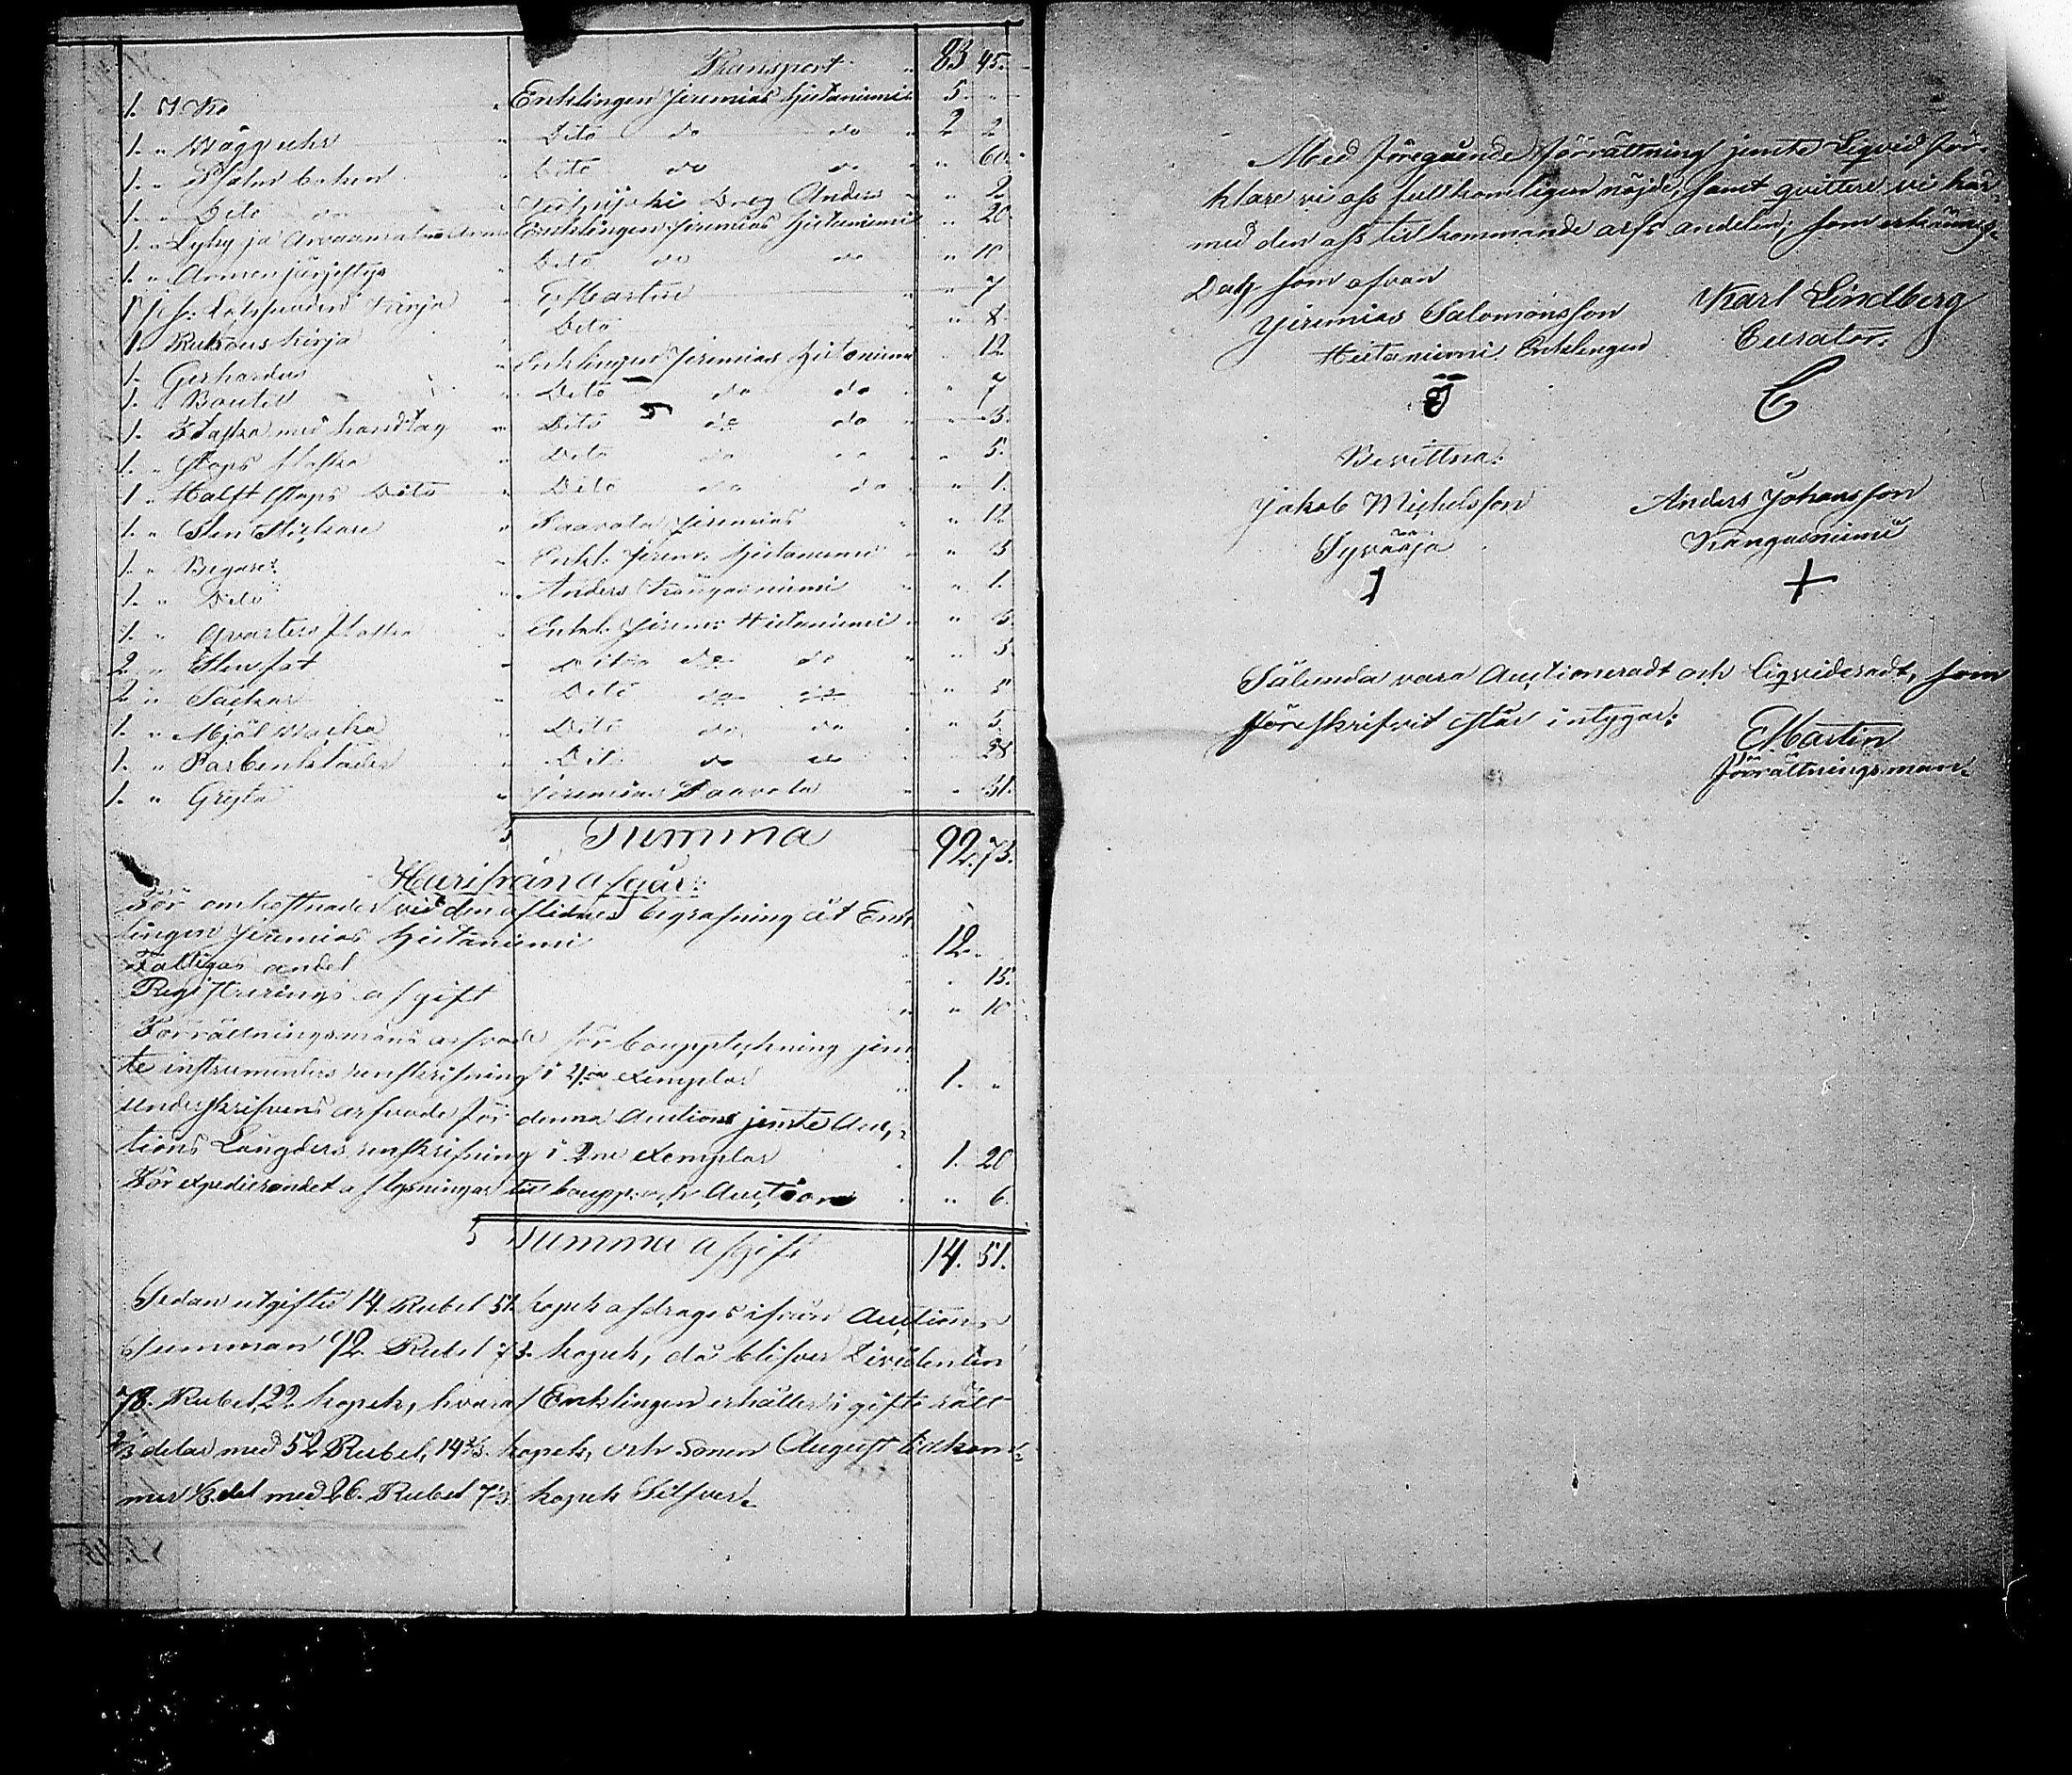 Transport " 83 45.
1. St. Ko " Enklingen Jeremias Hietaniemi " 5. "
1. " Wägg uhr " Dito do do " 2 2
1. " Psalm boken " Dito do do " " 60.
1. " Dito do " Dreg Anders " " 2.
1. " Lyhy ja Enklingen Jeremias Hietaniemi " " 20
1. " Armon järjestys " Dito do do " " 10
kirja " E Martin " " 7
1. kirja " Dito " " 8.
1. Gerhardus " Enklingen Jeremias Hietaniemi " 12
1. " Boutel " Dito do do " 7
1. Flaska med handtag " Dito do do " " 3.
1. " Stops flaska " Dito do do " " 5.
1 " Halft Stops Dito " Dito do do " " 1.
1. " Sten " Paavola Jeremias " " 12
1. " Begare " Enkl. Jerem: Hietaniemi " " 3
1. " Dito " Anders Kangasniemi " " 1.
1. " Qvarters flaska " Enkl. Jerem: Hietaniemi " " 3.
2. " Stenfat " Dito do do " " 5
2. " Säckar " Dito do do " " 5
1. " Mjöl " Dito do do " " 5.
1. " " Dito do do " 28
1. " Gryta " Jeremias Paavola " " 31.
Summa 92. 73.
Härifrån afgår:
För omkostnader vid den aflidnes begrafning åt Enk-
lingen Jeremias Hietaniemi " 12. "
Fattigas andel " " 15.
Registrerings afgift " " 10
Förrättningsmans arfvode för bouppteckning jem
te instrumentets renskrifning i 4:ra exemplar " 1. "
Underskrifvens arfvode för denna Auction jemte Auc-
tions Längdens renskrifning i 2ne exemplar " 1. 20
För expedierandet af lysningar till boupp: och Auction " " 6.
Summa afgift 14. 51.
Sedan utgiften 14. Rubel 51. kopek afdrages ifrån Auctions
Summan 92. Rubel 73. kopek, då blifver Dividenten
78. Rubel, 22. kopek, hvaraf Enklingen erhåller i gifto rätt
2/3 delar med 52 Rubel, 14 2/3. kopek, och sonen August tilkom-
mer 1/3. del med 26. Rubel 7 1/3 kopek Silfver.
Med föregående förrättning jemte Liqvid för-
klare vi oss fullkomligen nöjde, samt qvittere vi här
med den oss tillkommande arfs andelen; som erkännes
Dag som ofvan
Jeremias Salomonsson Karl Lindberg
Hietaniemi Enklingen Curator.
J C
Bevittna:
Jakob Michelsson Anders Johansson
Syväoja Kangasniemi
J +
Sålunda vara Auctioneradt och liqvideradt, som
föreskrifvit står intygar:
E Martin
förrättningsman.